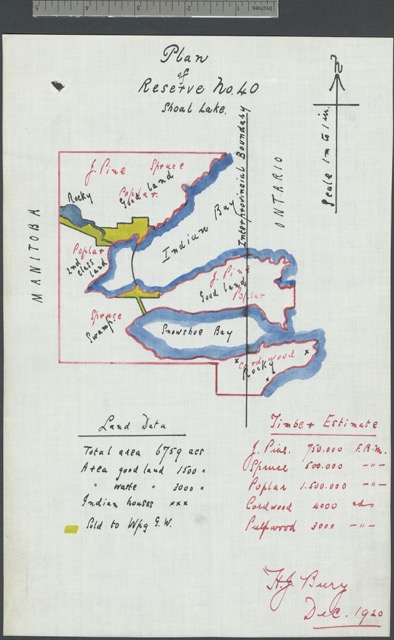 Plan
of
Reserve No. 40
Shoal Lake.
N
Scale 1 m to 1 in.
MANITOBA
Interprovincial Boundary
ONTARIO
J. Pine Spruce
Poplar
Good Land
Rocky
Indian Bay
Poplar
2nd class land
J. Pine
Good land
Poplar
Spruce
Swamp
Snowshoe Bay
Cordwood
Rocky
Land Data
Total area 6759 acs
Area good land 1500 "
" waste " 3000 "
Indian houses xxx
Sold to Wpg G. W.
Timber Estimate
J. Pine. 750.000 F.B.M.
Spruce 500.000 -"-
Poplar 1.500.000 -"-
Cordwood 4000
Pulpwood 3000 -"-
H.J. Bury
Dec. 1920